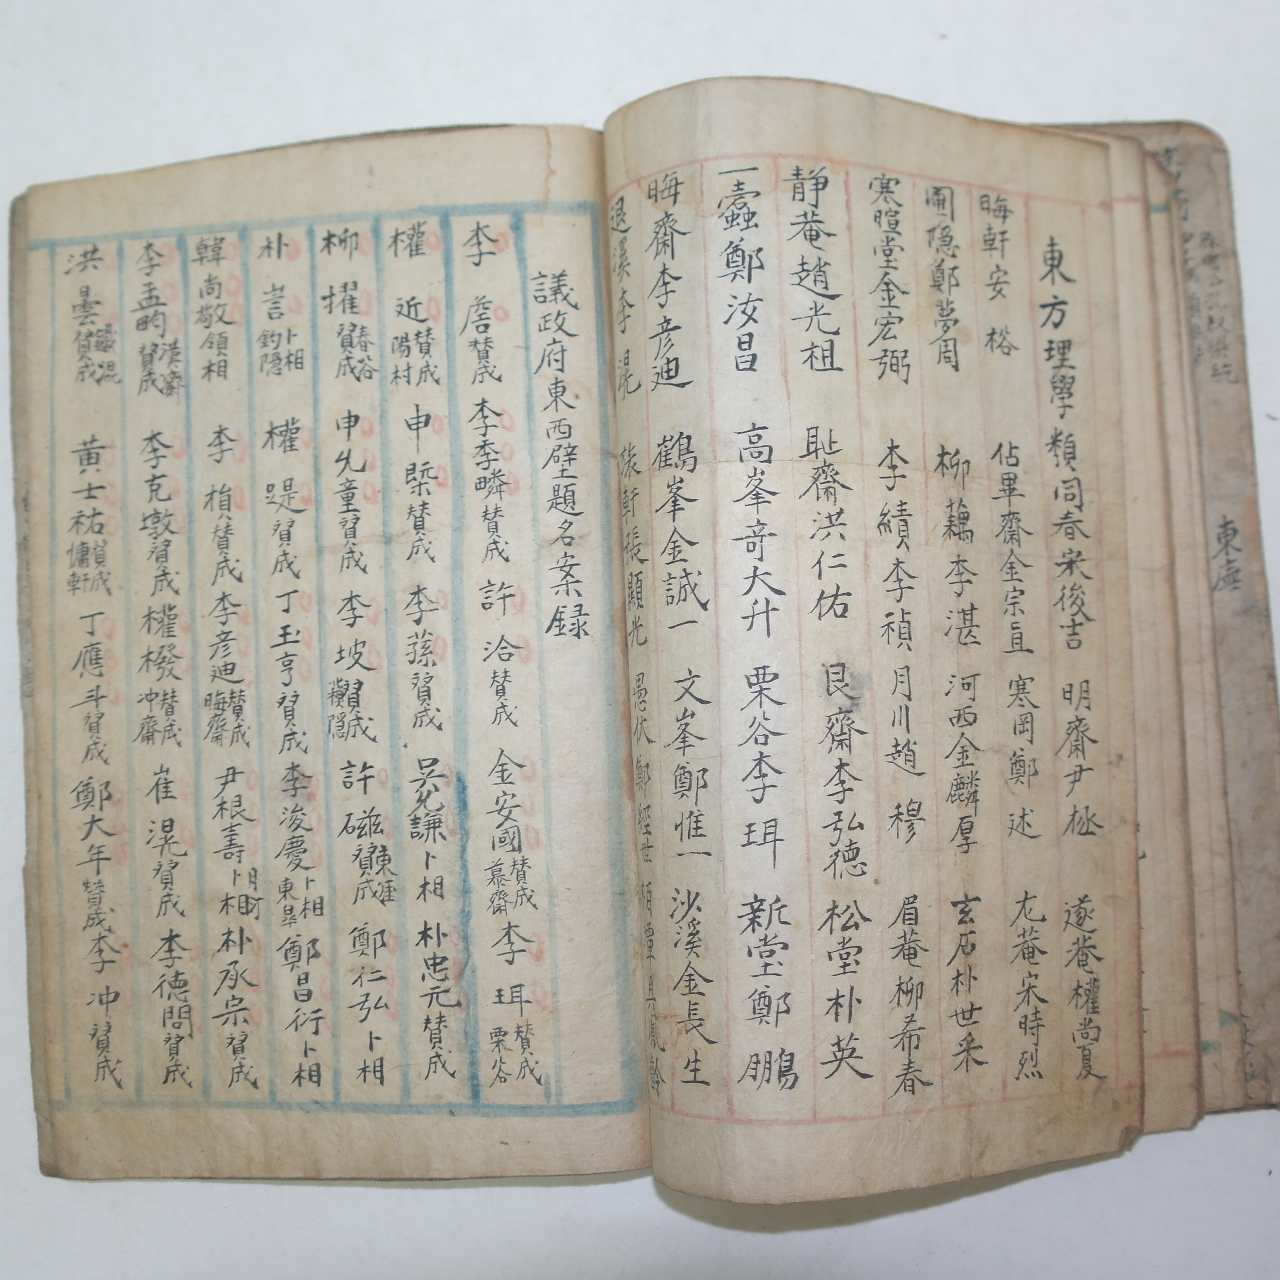 東方理學類 同春宋浚吉 明齋尹極 遂菴權尚夏
晦軒安裕 佔畢齋金宗直 寒岡鄭逑 尤菴宋時烈
圃隱鄭夢周 柳藕 李湛 河西金麟厚 玄石朴世采
寒暄堂金宏弼 李績 李禎 月川趙穆 眉菴柳希春
靜菴趙光祖 耻齋洪仁佑 艮齋李弘德 松堂朴英
一蠹鄭汝昌 高峯奇大升 栗谷李珥 新堂鄭鵬
晦齋李彦迪 鶴峯金誠一 文峯鄭惟一 沙溪金長生
退溪李滉 張軒張顯光 愚伏鄭經世
議政府東西壁題名案録
李詹贊成 李季疄贊成 許洽贊成 金安國贊成慕齋 李珥贊成栗谷
權近贊成陽村 申槩贊成 李蓀贊成 吳允謙卜相 朴忠元贊成
柳擢贊成春谷 申允童贊成 李坡贊成 許磁贊成東涯 鄭仁弘卜相
朴訔卜相釣隱 權踶贊成 丁玉亨贊成 李浚慶卜相東皐 鄭昌衍卜相
韓尚敬領相 李㮒贊成 李彦迪贊成晦齋 尹根壽卜相月汀 朴承宗贊成
李孟畇贊成漢齋 李克墩贊成 權橃贊成冲齋 崔滉贊成 李德問贊成
洪曇贊成 黃士祐贊成慵軒 丁應斗贊成 鄭大年贊成 李冲贊成
東廡